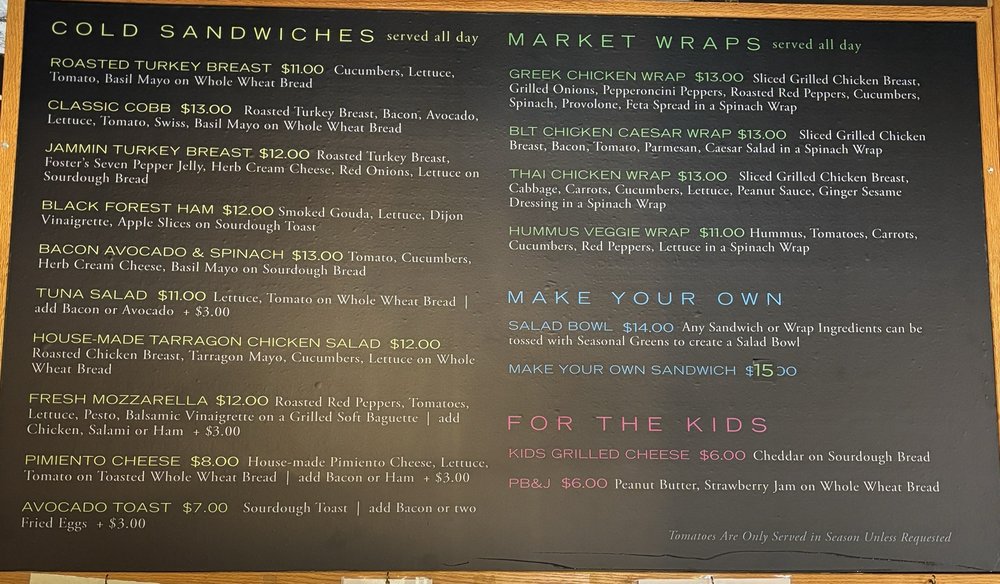 COLD SANDWICHES served all day
ROASTED TURKEY BREAST $11.00 Cucumbers, Lettuce,
Tomato, Basil Mayo on Whole Wheat Bread
CLASSIC COBB $13.00 Roasted Turkey Breast, Bacon, Avocado,
Lettuce, Tomato, Swiss, Basil Mayo on Whole Wheat Bread
JAMMIN TURKEY BREAST $12.00 Roasted Turkey Breast,
Foster's Seven Pepper Jelly, Herb Cream Cheese, Red Onions, Lettuce on
Sourdough Bread
BLACK FOREST HAM $12.00 Smoked Gouda, Lettuce, Dijon
Vinaigrette, Apple Slices on Sourdough Toast
BACON AVOCADO & SPINACH $13.00 Tomato, Cucumbers,
Herb Cream Cheese, Basil Mayo on Sourdough Bread
TUNA SALAD $11.00 Lettuce, Tomato on Whole Wheat Bread |
add Bacon or Avocado + $3.00
HOUSE-MADE TARRAGON CHICKEN SALAD $12.00
Roasted Chicken Breast, Tarragon Mayo, Cucumbers, Lettuce on Whole
Wheat Bread
FRESH MOZZARELLA $12.00 Roasted Red Peppers, Tomatoes,
Lettuce, Pesto, Balsamic Vinaigrette on a Grilled Soft Baguette | add
Chicken, Salami or Ham + $3.00
PIMIENTO CHEESE $8.00 House-made Pimiento Cheese, Lettuce,
Tomato on Toasted Whole Wheat Bread | add Bacon or Ham + $3.00
AVOCADO TOAST $7.00 Sourdough Toast | add Bacon or two
Fried Eggs + $3.00
MARKET WRAPS served all day
GREEK CHICKEN WRAP $13.00 Sliced Grilled Chicken Breast,
Grilled Onions, Pepperoncini Peppers, Roasted Red Peppers, Cucumbers,
Spinach, Provolone, Feta Spread in a Spinach Wrap
BLT CHICKEN CAESAR WRAP $13.00 Sliced Grilled Chicken
Breast, Bacon, Tomato, Parmesan, Caesar Salad in a Spinach Wrap
THAI CHICKEN WRAP $13.00 Sliced Grilled Chicken Breast,
Cabbage, Carrots, Cucumbers, Lettuce, Peanut Sauce, Ginger Sesame
Dressing in a Spinach Wrap
HUMMUS VEGGIE WRAP $11.00 Hummus, Tomatoes, Carrots,
Cucumbers, Red Peppers, Lettuce in a Spinach Wrap
MAKE YOUR OWN
SALAD BOWL $14.00 Any Sandwich or Wrap Ingredients can be
tossed with Seasonal Greens to create a Salad Bowl
MAKE YOUR OWN SANDWICH $15.00
FOR THE KIDS
KIDS GRILLED CHEESE $6.00 Cheddar on Sourdough Bread
PB&J $6.00 Peanut Butter, Strawberry Jam on Whole Wheat Bread
Tomatoes Are Only Served in Season Unless Requested